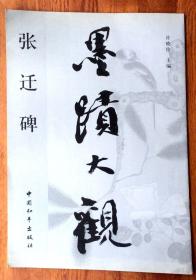 墨蹟大觀
张迁碑
主编
中国和平出版社